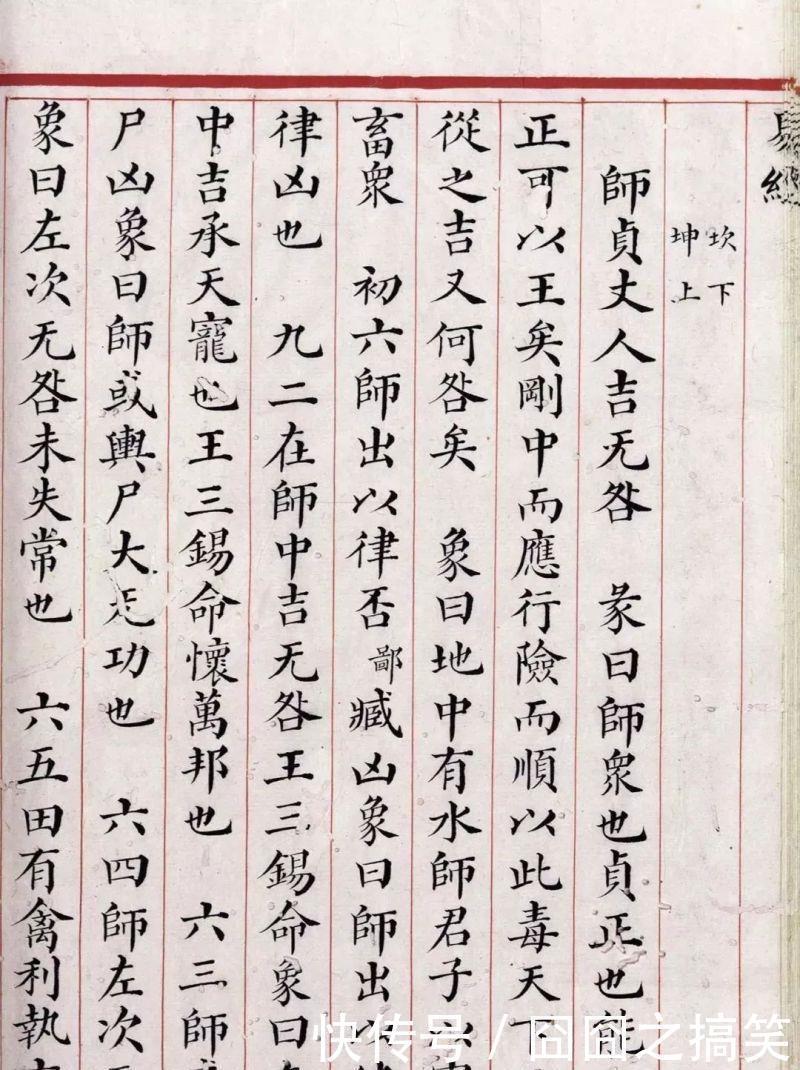 易經
坎下
坤上
師貞丈人吉无咎 彖曰師衆也貞正也能
正可以王矣剛中而應行險而順以此毒天下
從之吉又何咎矣 象曰地中有水師君子以
畜衆 初六師出以律否鄙臧凶象曰師出以
律凶也 九二在師中吉无咎王三錫命象曰
中吉承天寵也王三錫命懷萬邦也 六三師
尸凶象曰師或輿尸大无功也 六四師左次
象曰左次无咎未失常也 六五田有禽利執
快传号 / 囧囧之搞笑